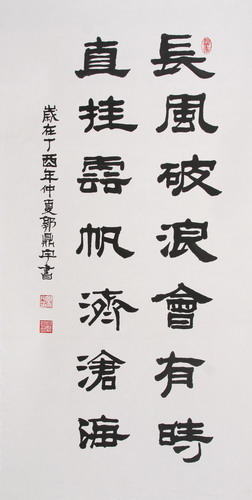 長風破浪會有時
直挂雲帆濟滄海
歲在丁酉年仲夏郭鼎宇書